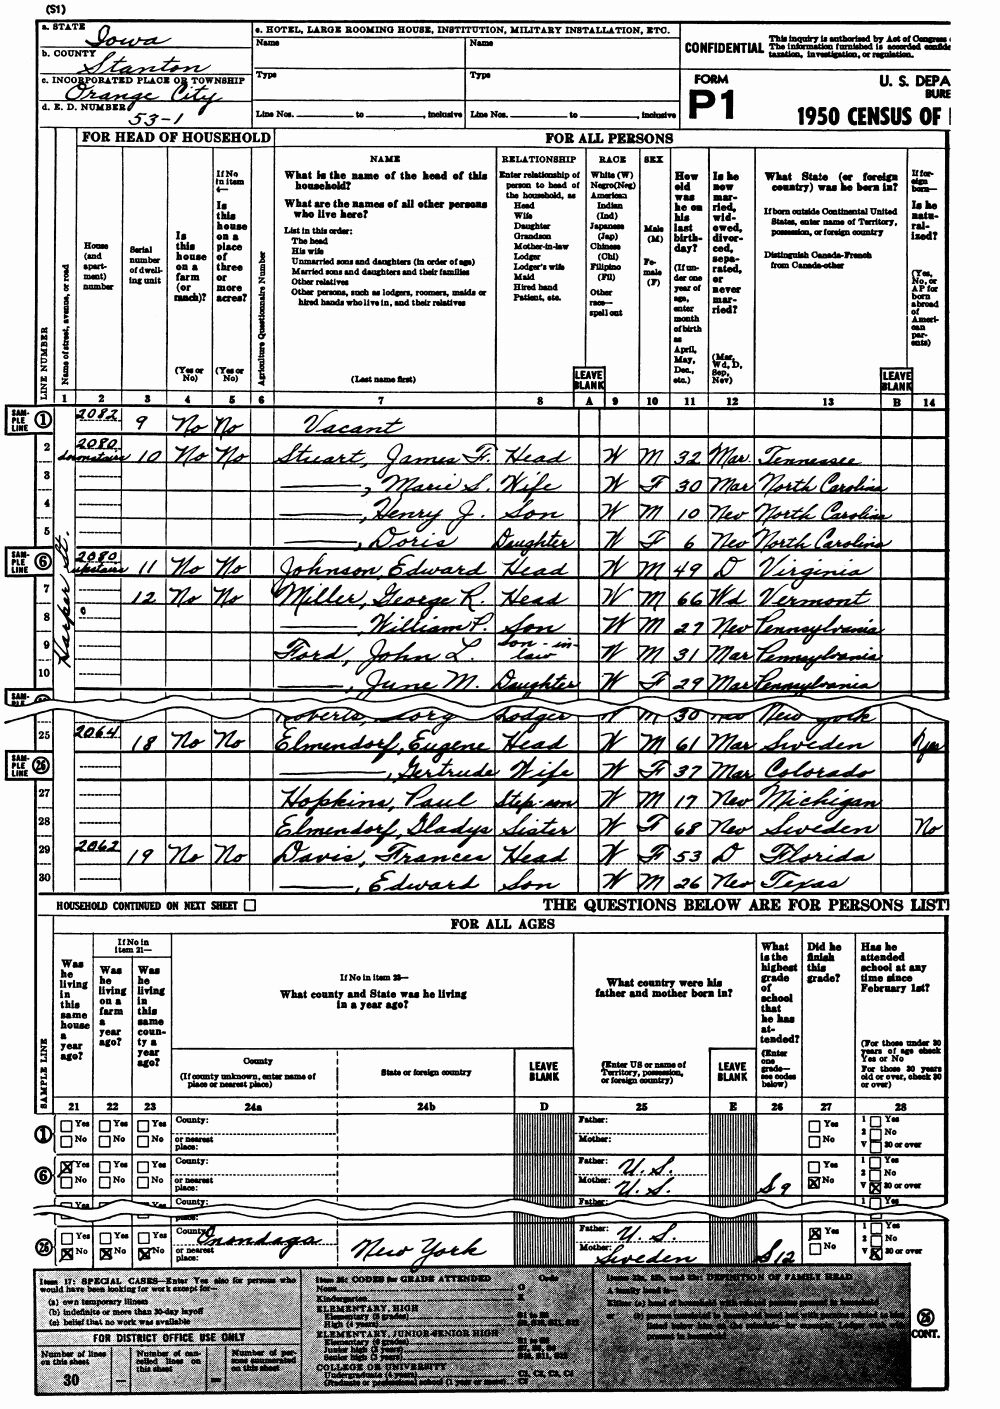 (S1)
a. STATE Iowa
b. COUNTY Stanton
c. INCORPORATED PLACE OR TOWNSHIP Orange City
d. E. D. NUMBER 53-1
e. HOTEL, LARGE ROOMING HOUSE, INSTITUTION, MILITARY INSTALLATION, ETC.
Name Name
Type Type
Line Nos. to , inclusive Line Nos. to , inclusive
CONFIDENTIAL This inquiry is authorized by Act of Congress
The information furnished is accorded
taxation, investigation, or regulation.
FORM P1
U. S. DEPA
BURE
1950 CENSUS OF
FOR HEAD OF HOUSEHOLD
FOR ALL PERSONS
LINE NUMBER
Name of street, avenue, or road
House (and apartment) number
Serial number of dwelling unit
Is this house on a farm (or ranch)?
(Yes or No)
If No in item 4—
Is this house on a place of three or more acres?
(Yes or No)
Agriculture Questionnaire Number
NAME
What is the name of the head of this household?
What are the names of all other persons who live here?
List in this order:
The head
His wife
Unmarried sons and daughters (in order of age)
Married sons and daughters and their families
Other relatives
Other persons, such as lodgers, roomers, maids or hired hands who live in, and their relatives
(Last name first)
RELATIONSHIP
Enter relationship of person to head of the household, as
Head
Wife
Daughter
Grandson
Mother-in-law
Lodger
Lodger's wife
Maid
Hired hand
Patient, etc.
LEAVE BLANK
RACE
White (W)
Negro(Neg)
American Indian (Ind)
Japanese (Jap)
Chinese (Chi)
Filipino (Fil)
Other race—spell out
SEX
Male (M)
Female (F)
How old was he on his last birthday?
(If under one year of age, enter month of birth as April, May, Dec., etc.)
Is he now married, widowed, divorced, separated, or never married?
(Mar, Wd, D, Sep, Nev)
What State (or foreign country) was he born in?
If born outside Continental United States, enter name of Territory, possession, or foreign country
Distinguish Canada-French from Canada-other
LEAVE BLANK
If foreign born—
Is he naturalized?
(Yes, No, or AP for born abroad of American parents)
1 2 3 4 5 6 7 8 A 9 10 11 12 13 B 14
Harper St.
SAMPLE LINE 1 2082 9 No No Vacant
2 2080 downstairs 10 No No Stuart, James F. Head W M 32 Mar Tennessee
3 , Marie S. Wife W F 30 Mar North Carolina
4 , Henry J. Son W M 10 Nev North Carolina
5 , Doris Daughter W F 6 Nev North Carolina
SAMPLE LINE 6 2080 upstairs 11 No No Johnson, Edward Head W M 49 D Virginia
7 12 No No Miller, George R. Head W M 66 Wd Vermont
8 , William P. Son W M 27 Nev Pennsylvania
9 Ford, John L. Son-in-law W M 31 Mar Pennsylvania
10 , June M. Daughter W F 29 Mar Pennsylvania
Lodger W M 30 New York
25 2064 18 No No Elmendorf, Eugene Head W M 61 Mar Sweden Yes
SAMPLE LINE 26 , Gertrude Wife W F 37 Mar Colorado
27 Hopkins, Paul Step-son W M 17 Nev Michigan
28 Elmendorf, Gladys Sister W F 68 Nev Sweden No
29 2062 19 No No Davis, Frances Head W F 53 D Florida
30 , Edward Son W M 26 Nev Texas
HOUSEHOLD CONTINUED ON NEXT SHEET
THE QUESTIONS BELOW ARE FOR PERSONS LIST
FOR ALL AGES
SAMPLE LINE
Was he living in this same house a year ago?
If No in item 21—
Was he living on a farm a year ago?
Was he living in this same county a year ago?
If No in item 23—
What county and State was he living in a year ago?
County
(If county unknown, enter name of place or nearest place)
State or foreign country
LEAVE BLANK
What country were his father and mother born in?
(Enter US or name of Territory, possession, or foreign country)
LEAVE BLANK
What is the highest grade of school that he has attended?
(Enter one grade—see codes below)
Did he finish this grade?
Has he attended school at any time since February 1st?
(For those under 30 years of age check Yes or No
For those 30 years old or over, check 30 or over)
21 22 23 24a 24b D 25 E 26 27 28
1 Yes Yes Yes County: Father: Yes 1 Yes
No No No or nearest place: Mother: No 2 No
V 30 or over
6 Yes Yes Yes County: Father: U. S. Yes 1 Yes
No No No or nearest place: Mother: U. S. S9 No 2 No
V 30 or over
County: Father: 1 Yes
26 Yes Yes Yes County: Onondaga Father: U. S. Yes 1 Yes
No No No or nearest place: New York Mother: Sweden S12 No 2 No
V 30 or over
Item 17: SPECIAL CASES—Enter Yes also for persons who would have been looking for work except for—
(a) own temporary illness
(b) indefinite or more than 30-day layoff
(c) belief that no work was available
FOR DISTRICT OFFICE USE ONLY
Number of lines on this sheet
30
Number of cancelled lines on this sheet
—
Number of persons enumerated on this sheet
—
Item 26: CODES for GRADE ATTENDED Code
None 0
Kindergarten K
ELEMENTARY, HIGH
Elementary (8 grades) S1 to S8
High (4 years) S9, S10, S11, S12
ELEMENTARY, JUNIOR-SENIOR HIGH
Elementary (6 grades) S1 to S6
Junior high (3 years) S7, S8, S9
Senior high (3 years) S10, S11, S12
COLLEGE OR UNIVERSITY
Undergraduate (4 years) C1, C2, C3, C4
Graduate or professional school (1 year or more) C5
DEFINITION OF FAMILY HEAD
A family head is—
26 CONT.